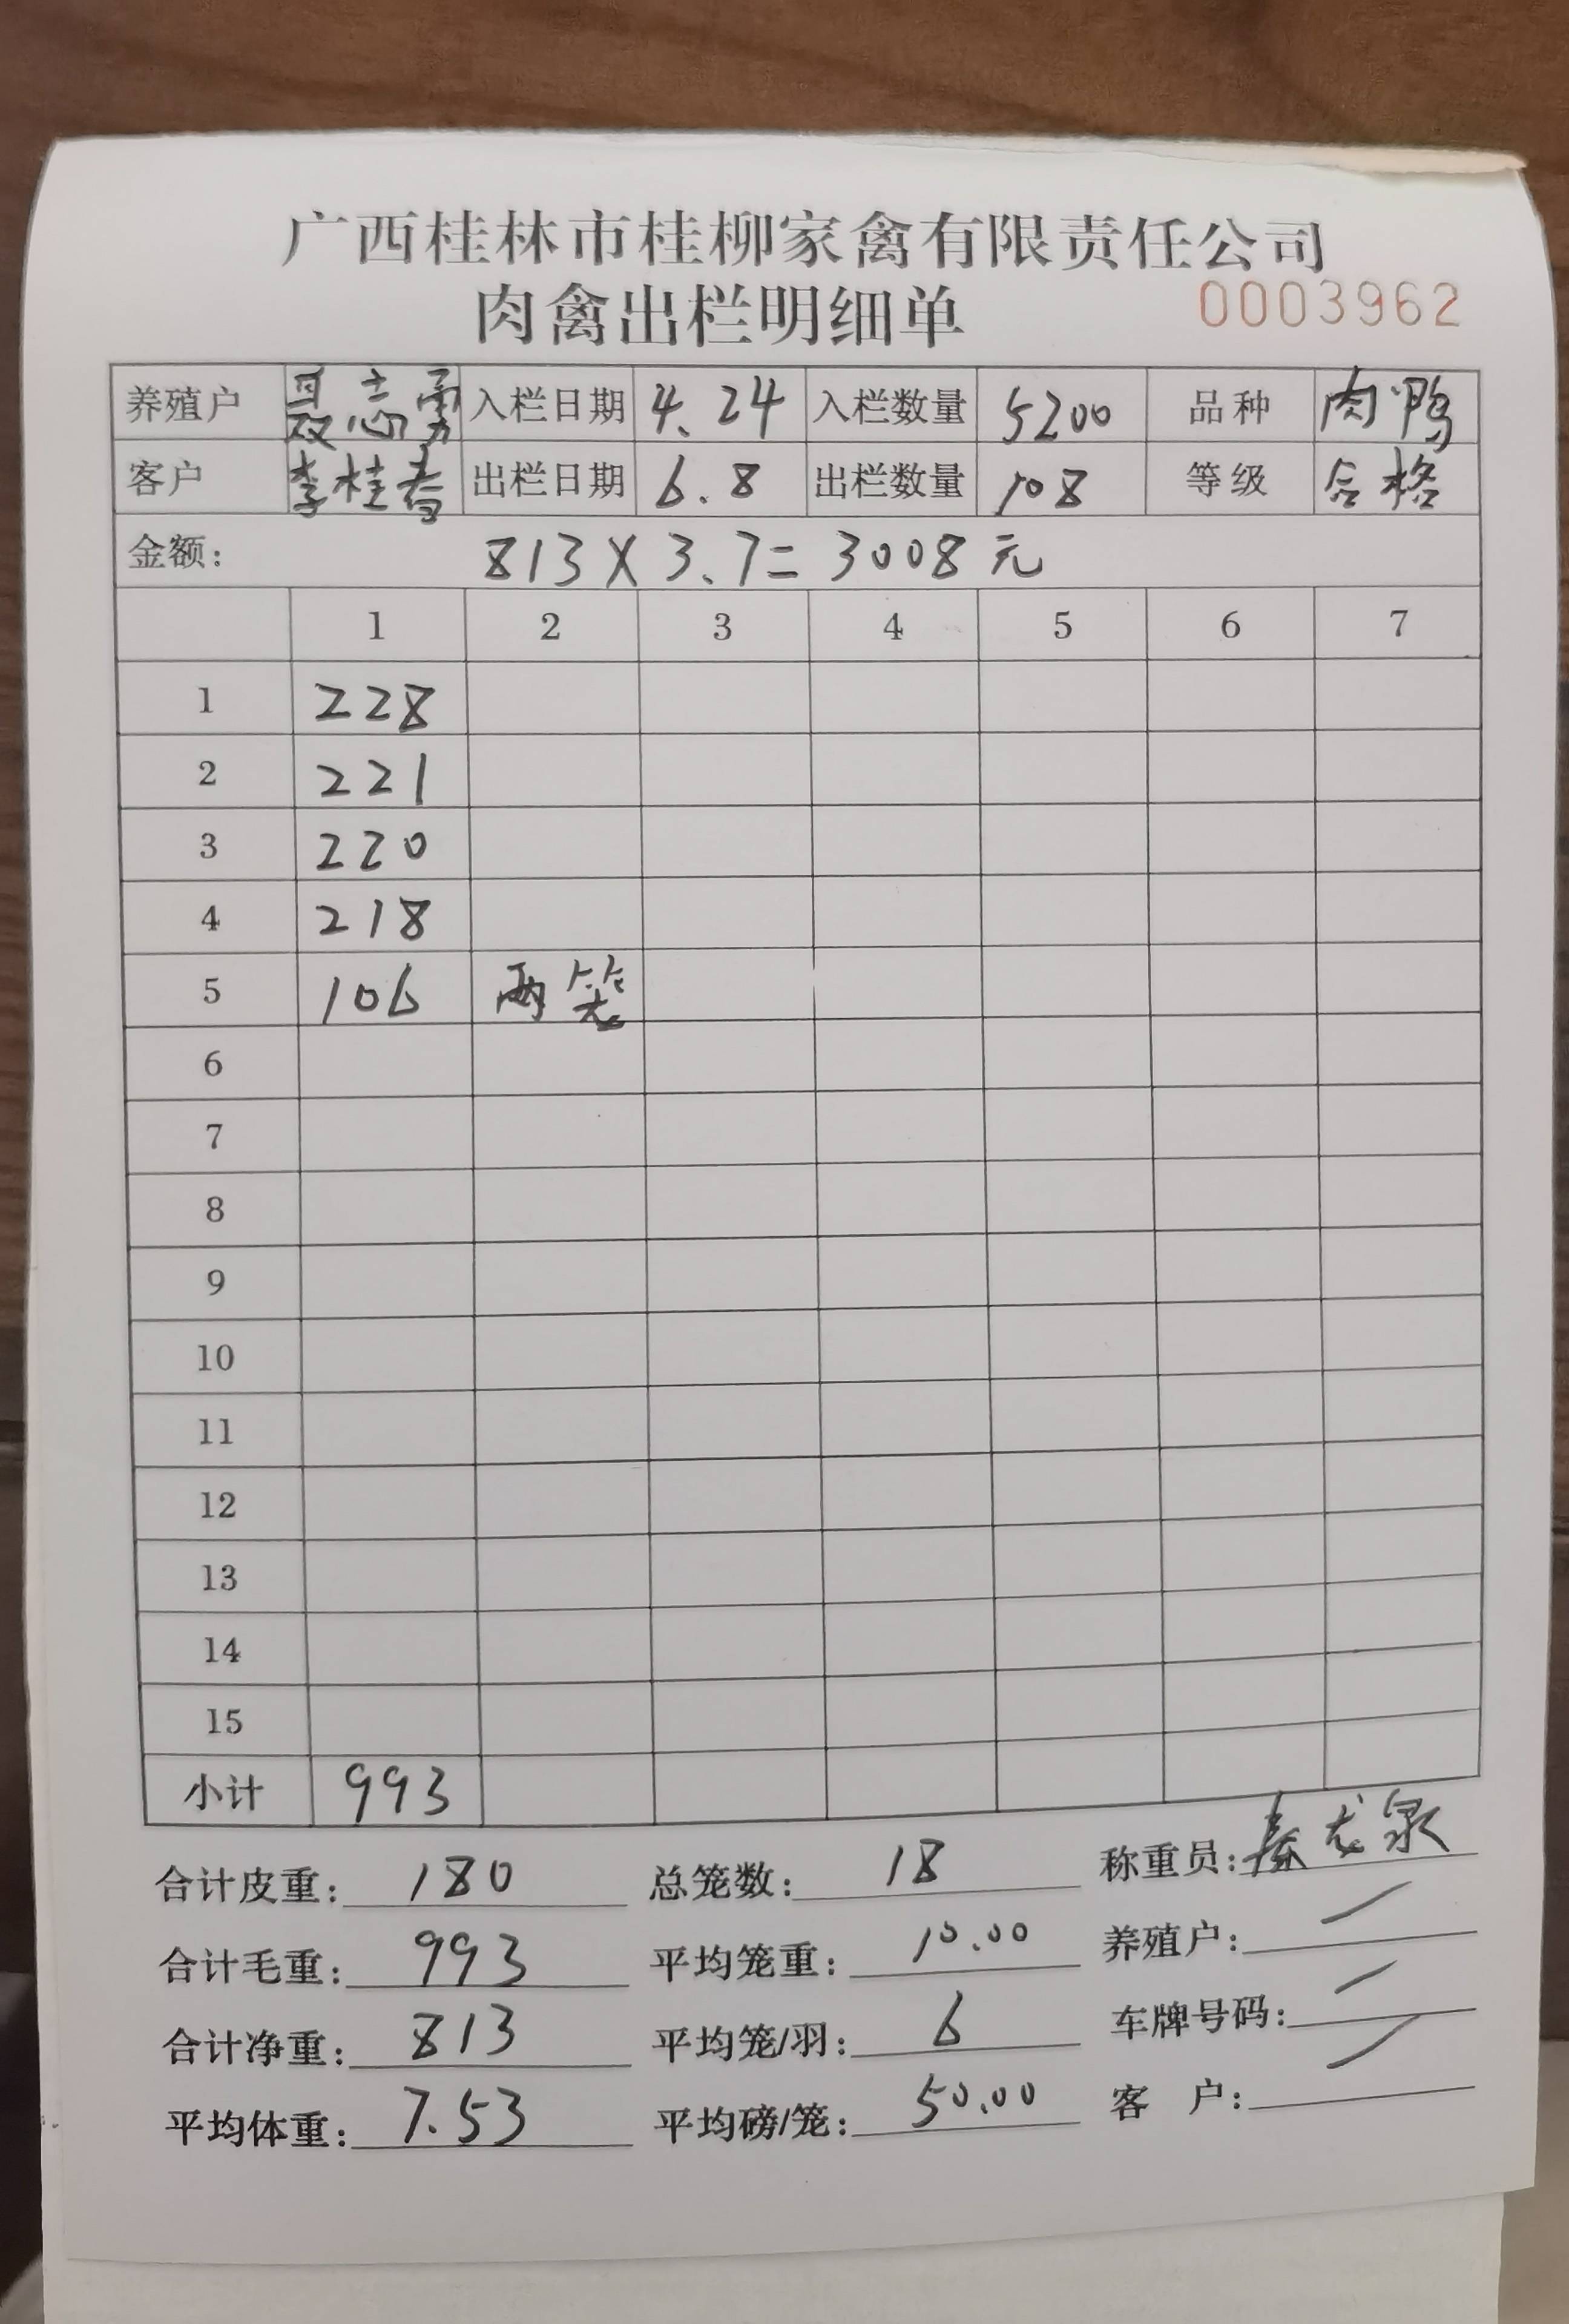 广西桂林市桂柳家禽有限责任公司
肉禽出栏明细单 0003962
养殖户 聂志勇 入栏日期 4.24 入栏数量 5200 品种 肉鸭
客户 李桂春 出栏日期 6.8 出栏数量 108 等级 合格
金额: 813×3.7=3008元
1 2 3 4 5 6 7
1 228
2 221
3 220
4 218
5 106 两笼
6
7
8
9
10
11
12
13
14
15
小计 993
合计皮重: 180 总笼数: 18 称重员: 秦龙泉
合计毛重: 993 平均笼重: 10.00 养殖户: /
合计净重: 813 平均笼/羽: 6 车牌号码: /
平均体重: 7.53 平均磅/笼: 50.00 客 户: /